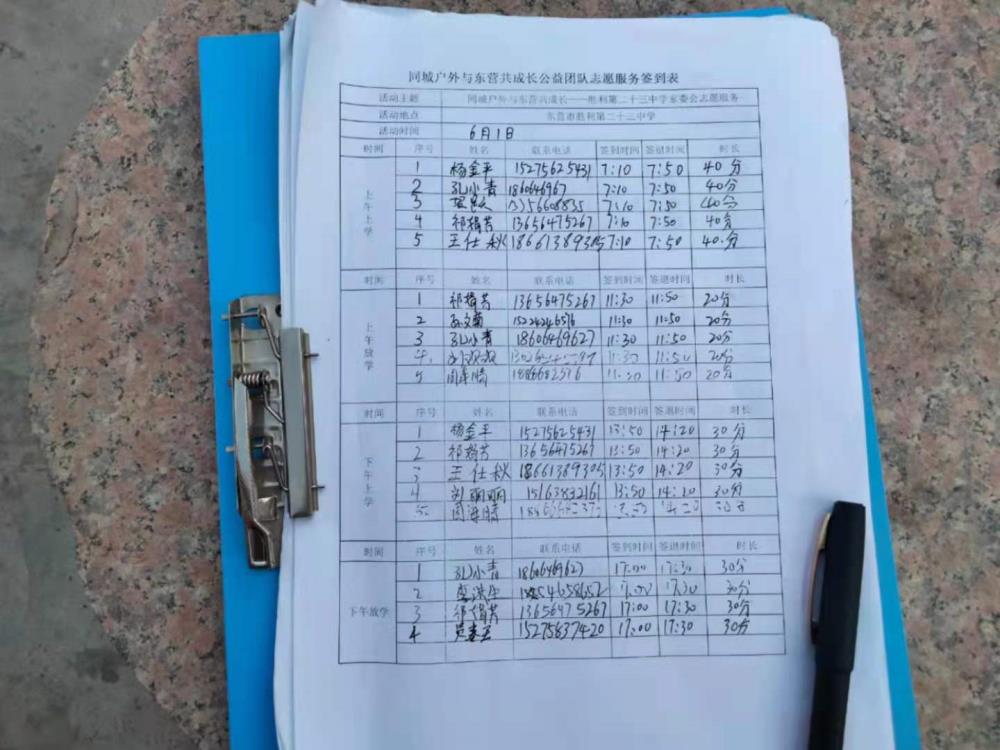 同城户外与东营共成长公益团队志愿服务签到表
活动主题 同城户外与东营共成长——胜利第二十三中学家委会志愿服务
活动地点 东营市胜利第二十三中学
活动时间 6月1日
时间 序号 姓名 联系电话 签到时间 签退时间 时长
上午上学
1 杨金平 15275625431 7:10 7:50 40分
2 孔小青 1860646967 7:10 7:50 40分
3 13356608835 7:10 7:50 40分
4 祁楷芳 13656475267 7:10 7:50 40分
5 王仕秋 18661389305 7:10 7:50 40分
时间 序号 姓名 联系电话 签到时间 签退时间 时长
上午放学
1 祁楷芳 13656475267 11:30 11:50 20分
2 11:30 11:50 20分
3 孔小青 18606469627 11:30 11:50 20分
4 11:30 11:50 20分
5 11:50 20分
时间 序号 姓名 联系电话 签到时间 签退时间 时长
下午上学
1 杨金平 15275625431 13:50 14:20 30分
2 祁楷芳 13656475267 13:50 14:20 30分
3 王仕秋 18661389305 13:50 14:20 30分
4 刘丽丽 15163832161 13:50 14:20 30分
5
时间 序号 姓名 联系电话 签到时间 签退时间 时长
下午放学
1 孔小青 1860646962 17:00 17:30 30分
2 17:00 17:30 30分
3 祁楷芳 13656475267 17:00 17:30 30分
4 15275837420 17:00 17:30 30分